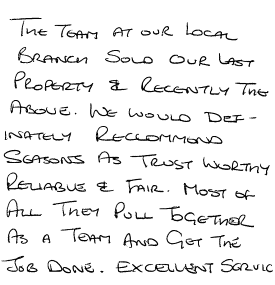 THE TEAM AT OUR LOCAL
BRANCH SOLD OUR LAST
PROPERTY & RECENTLY THE
ABOVE. WE WOULD DEF-
INATELY RECCOMMEND
SEASONS AS TRUST WORTHY
RELIABLE & FAIR. MOST OF
ALL THEY PULL TOGETHER
AS A TEAM AND GET THE
JOB DONE. EXCELLENT SERVIC